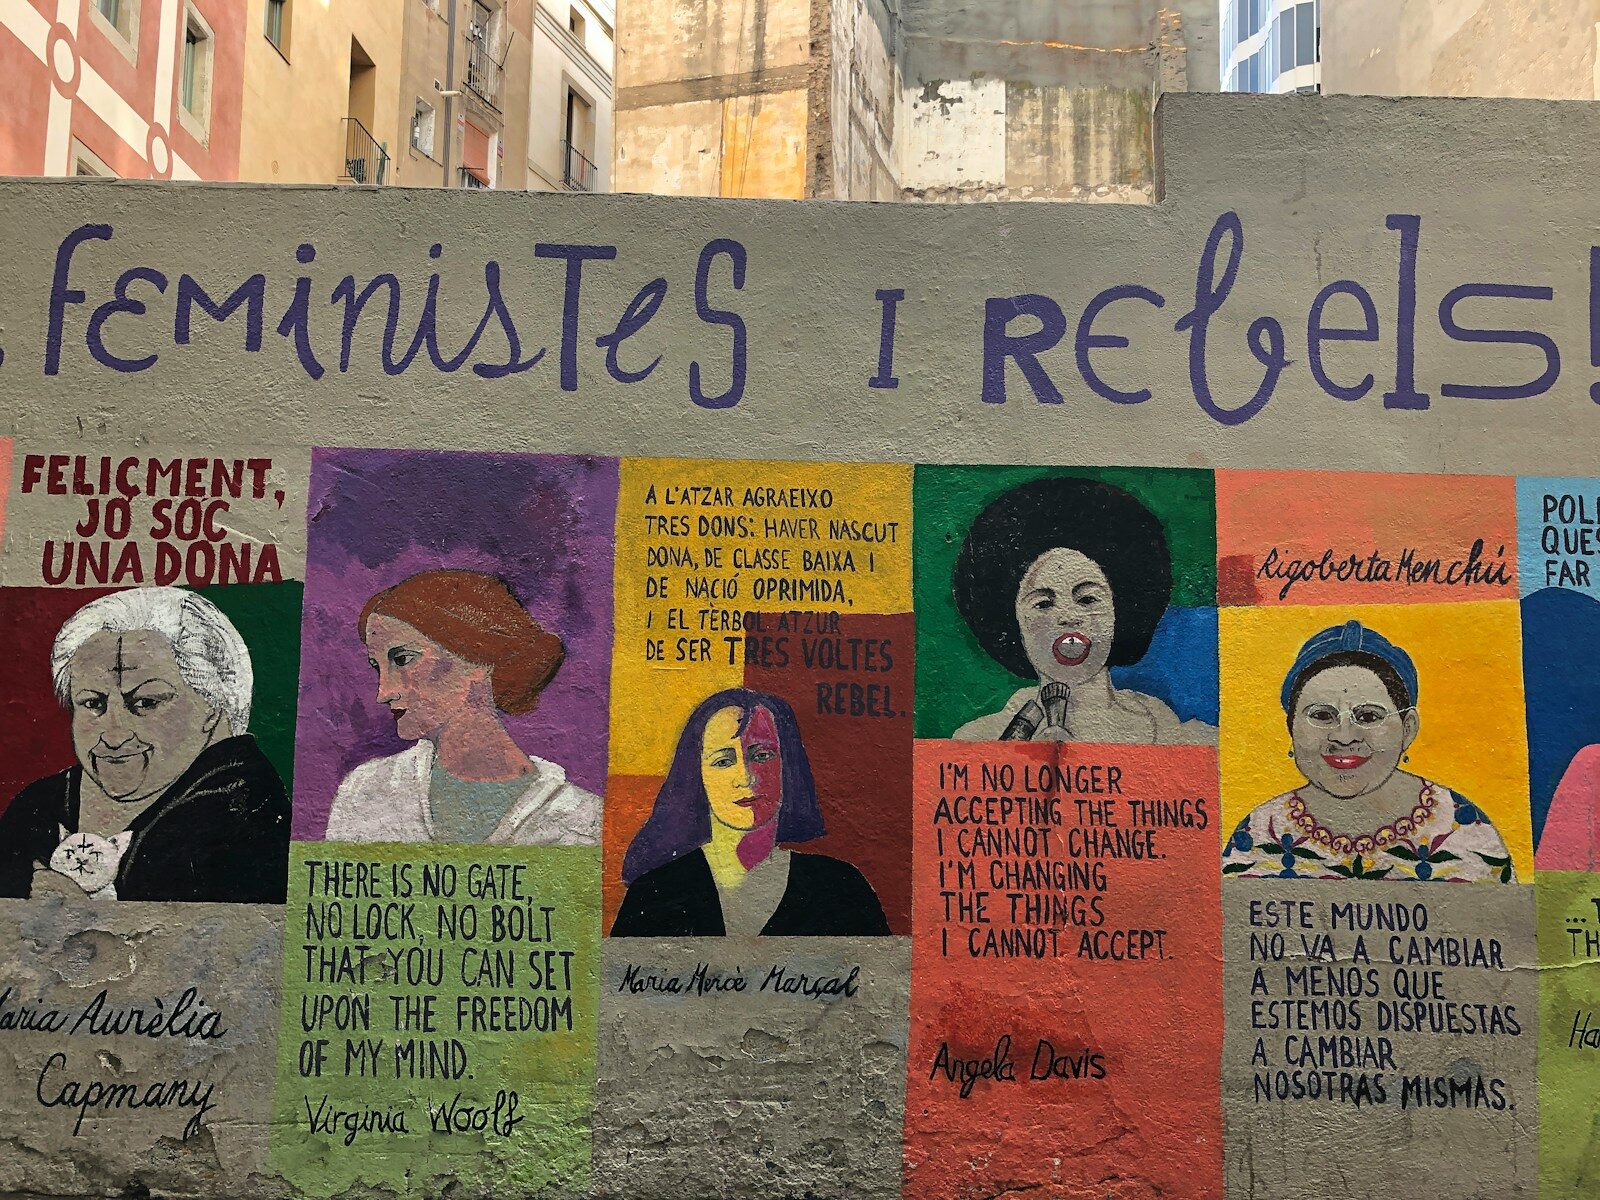 , FEMINISTES I REBELS!
FELIÇMENT,
JO SÓC
UNA DONA
Maria Aurèlia
Capmany
THERE IS NO GATE,
NO LOCK, NO BOLT
THAT YOU CAN SET
UPON THE FREEDOM
OF MY MIND.
Virginia Woolf
A L'ATZAR AGRAEIXO
TRES DONS: HAVER NASCUT
DONA, DE CLASSE BAIXA I
DE NACIÓ OPRIMIDA,
I EL TÈRBOL ATZUR
DE SER TRES VOLTES
REBEL.
Maria Mercè Marçal
I'M NO LONGER
ACCEPTING THE THINGS
I CANNOT CHANGE.
I'M CHANGING
THE THINGS
I CANNOT ACCEPT.
Angela Davis
Rigoberta Menchú
ESTE MUNDO
NO VA A CAMBIAR
A MENOS QUE
ESTEMOS DISPUESTAS
A CAMBIAR
NOSOTRAS MISMAS.
POL
QUES
FAR
...T
TH
Ha